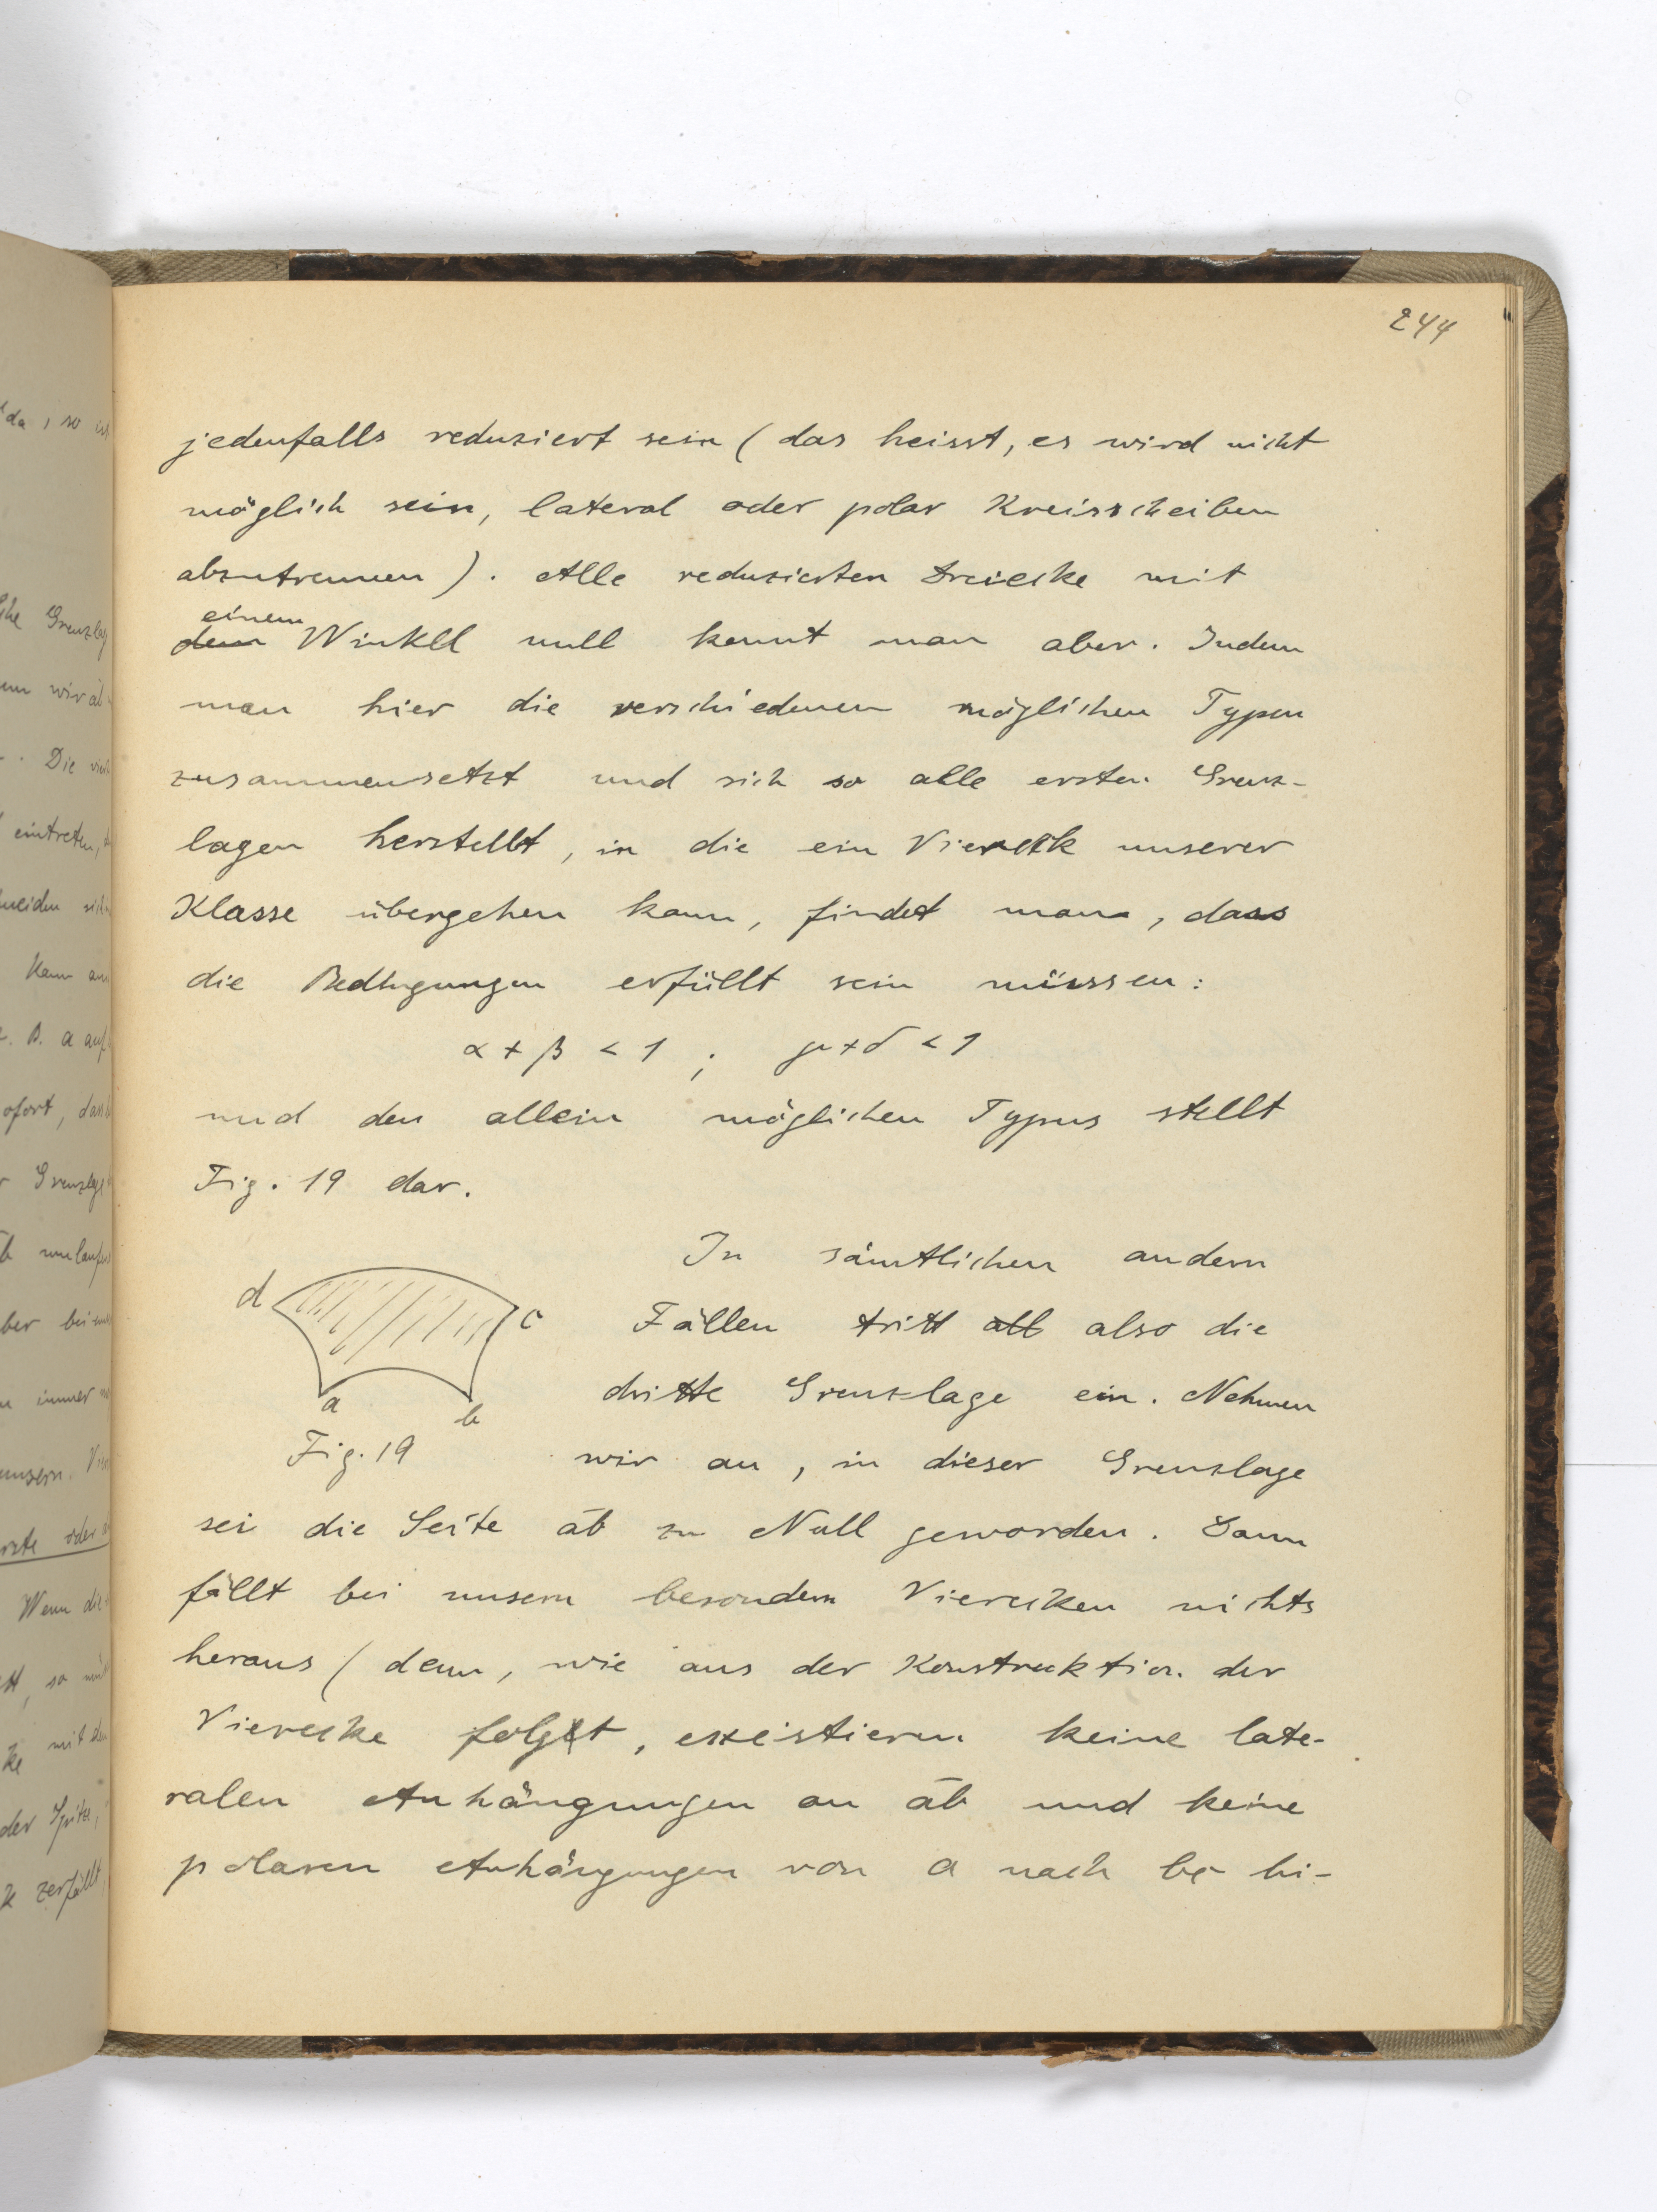 244
jedenfalls reduziert sein (das heisst, es wird nicht
möglich sein, lateral oder polar Kreisscheiben
abzutrennen). Alle reduzierten Dreiecke mit
einem
dem Winkel null kennt man aber. Indem
man hier die verschiedenen möglichen Typen
zusammensetzt und sich so alle ersten Grenz-
lagen herstellt, in die ein Viereck unserer
Klasse übergehen kann, findet man, dass
die Bedingungen erfüllt sein müssen:
α + β < 1 ; γ + δ < 1
und den allein möglichen Typus stellt
Fig. 19 dar.
In sämtlichen andern
d
c
Fällen tritt all also die
dritte Grenzlage ein. Nehmen
a
b
Fig. 19
wir an, in dieser Grenzlage
sei die Seite ab zu Null geworden. Dann
fällt bei unsern besondern Vierecken nichts
heraus (denn, wie aus der Konstruktion der
Vierecke folgt, existieren keine late-
ralen Anhängungen an ab und keine
polaren Anhängungen von a nach bc hi-
da, so
Grenzlag
wir
Die
eintreten,
Kann
B. a auf
dass
Grenzlage
umlaufen
immer
unsern
oder
Wenn die
so
mit
der Spitze,
zerfällt